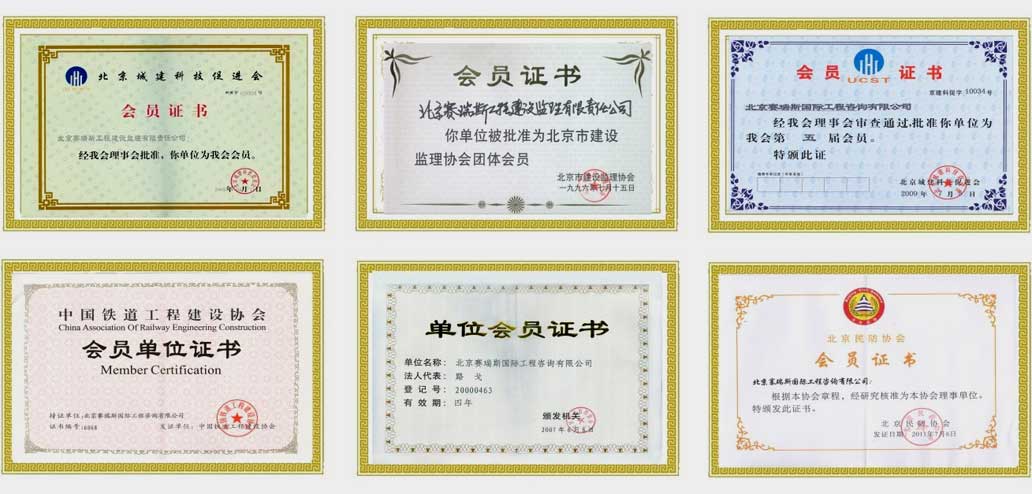 北京城建科技促进会
会员证书
北京赛瑞斯工程建设监理有限责任公司:
经我会理事会批准,你单位为我会会员。
会员证书
北京赛瑞斯工程建设监理有限责任公司
你单位被批准为北京市建设
监理协会团体会员
北京市建设监理协会
一九九六年七月十五日
会员 UCST 证书
京建科促字10034号
北京赛瑞斯国际工程咨询有限公司
经我会理事会审查通过,批准你单位为
我会第 五 届会员。
特颁此证
北京城建科技促进会
2009年 月 日
中国铁道工程建设协会
China Association Of Railway Engineering Construction
会员单位证书
Member Certification
持证单位:北京赛瑞斯国际工程咨询有限公司
证书编号:6068 发证单位:中国铁道工程建设协会
单位会员证书
单位名称: 北京赛瑞斯国际工程咨询有限公司
法人代表: 路 戈
登 记 号: 20000463
有 效 期: 四年
颁发机关
2007年6月8日
北京民防协会
会员证书
北京赛瑞斯国际工程咨询有限公司:
根据本协会章程,经研究核准为本协会理事单位。
特颁发此证书。
北京民防协会
发证日期:2011年7月6日